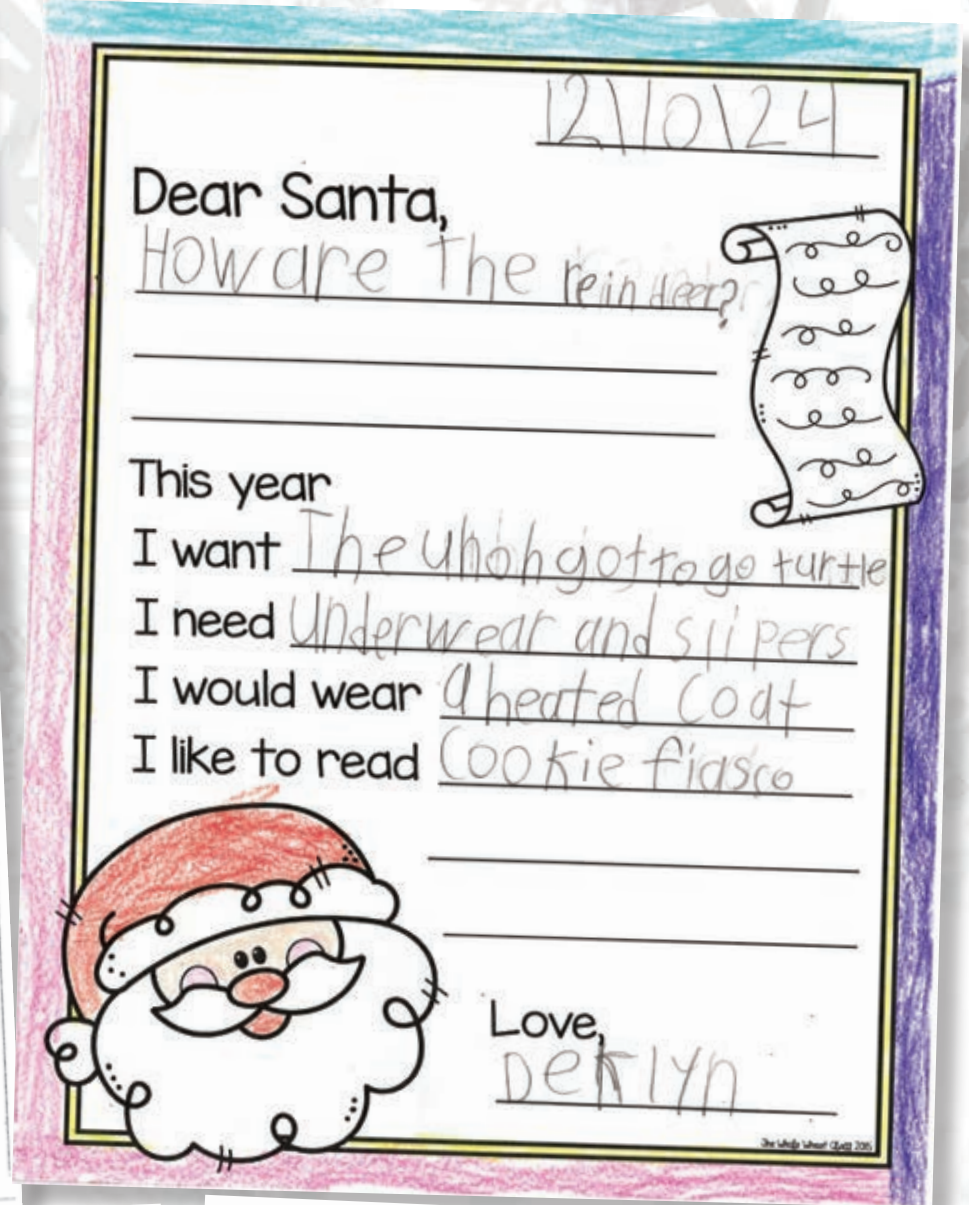 12\10\24
Dear Santa,
How are The reindeer?
This year
I want The uhoh gotto go turtle
I need Underwear and slipers
I would wear a heated Coat
I like to read Cookie fiasco
Love,
Deklyn
The Whole Wheat Class 2015